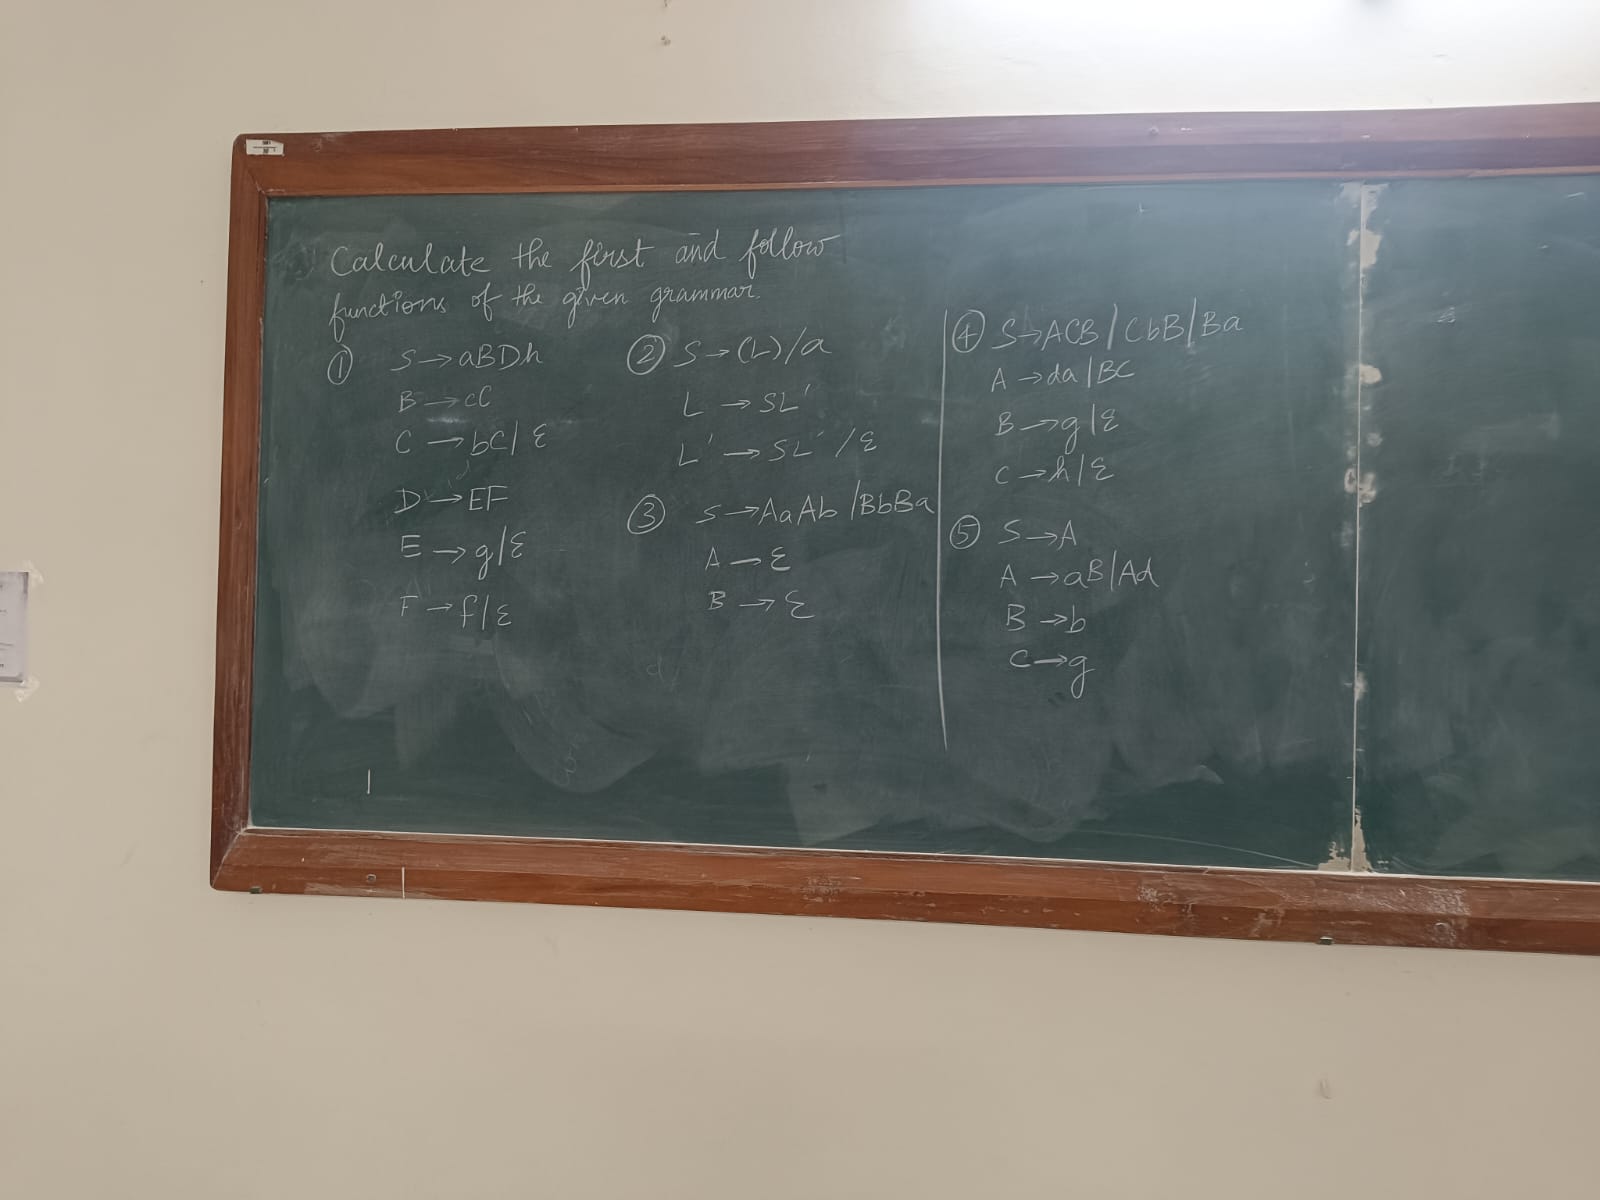 Calculate the first and follow
functions of the given grammar.
① S→aBDh
B→cC
C→bC/ε
D→EF
E→g/ε
F→f/ε
② S→(L)/a
L→SL'
L'→SL'/ε
③ S→AaAb/BbBa
A→ε
B→ε
④ S→ACB/CbB/Ba
A→da/BC
B→g/ε
C→h/ε
⑤ S→A
A→aB/Ad
B→b
C→g